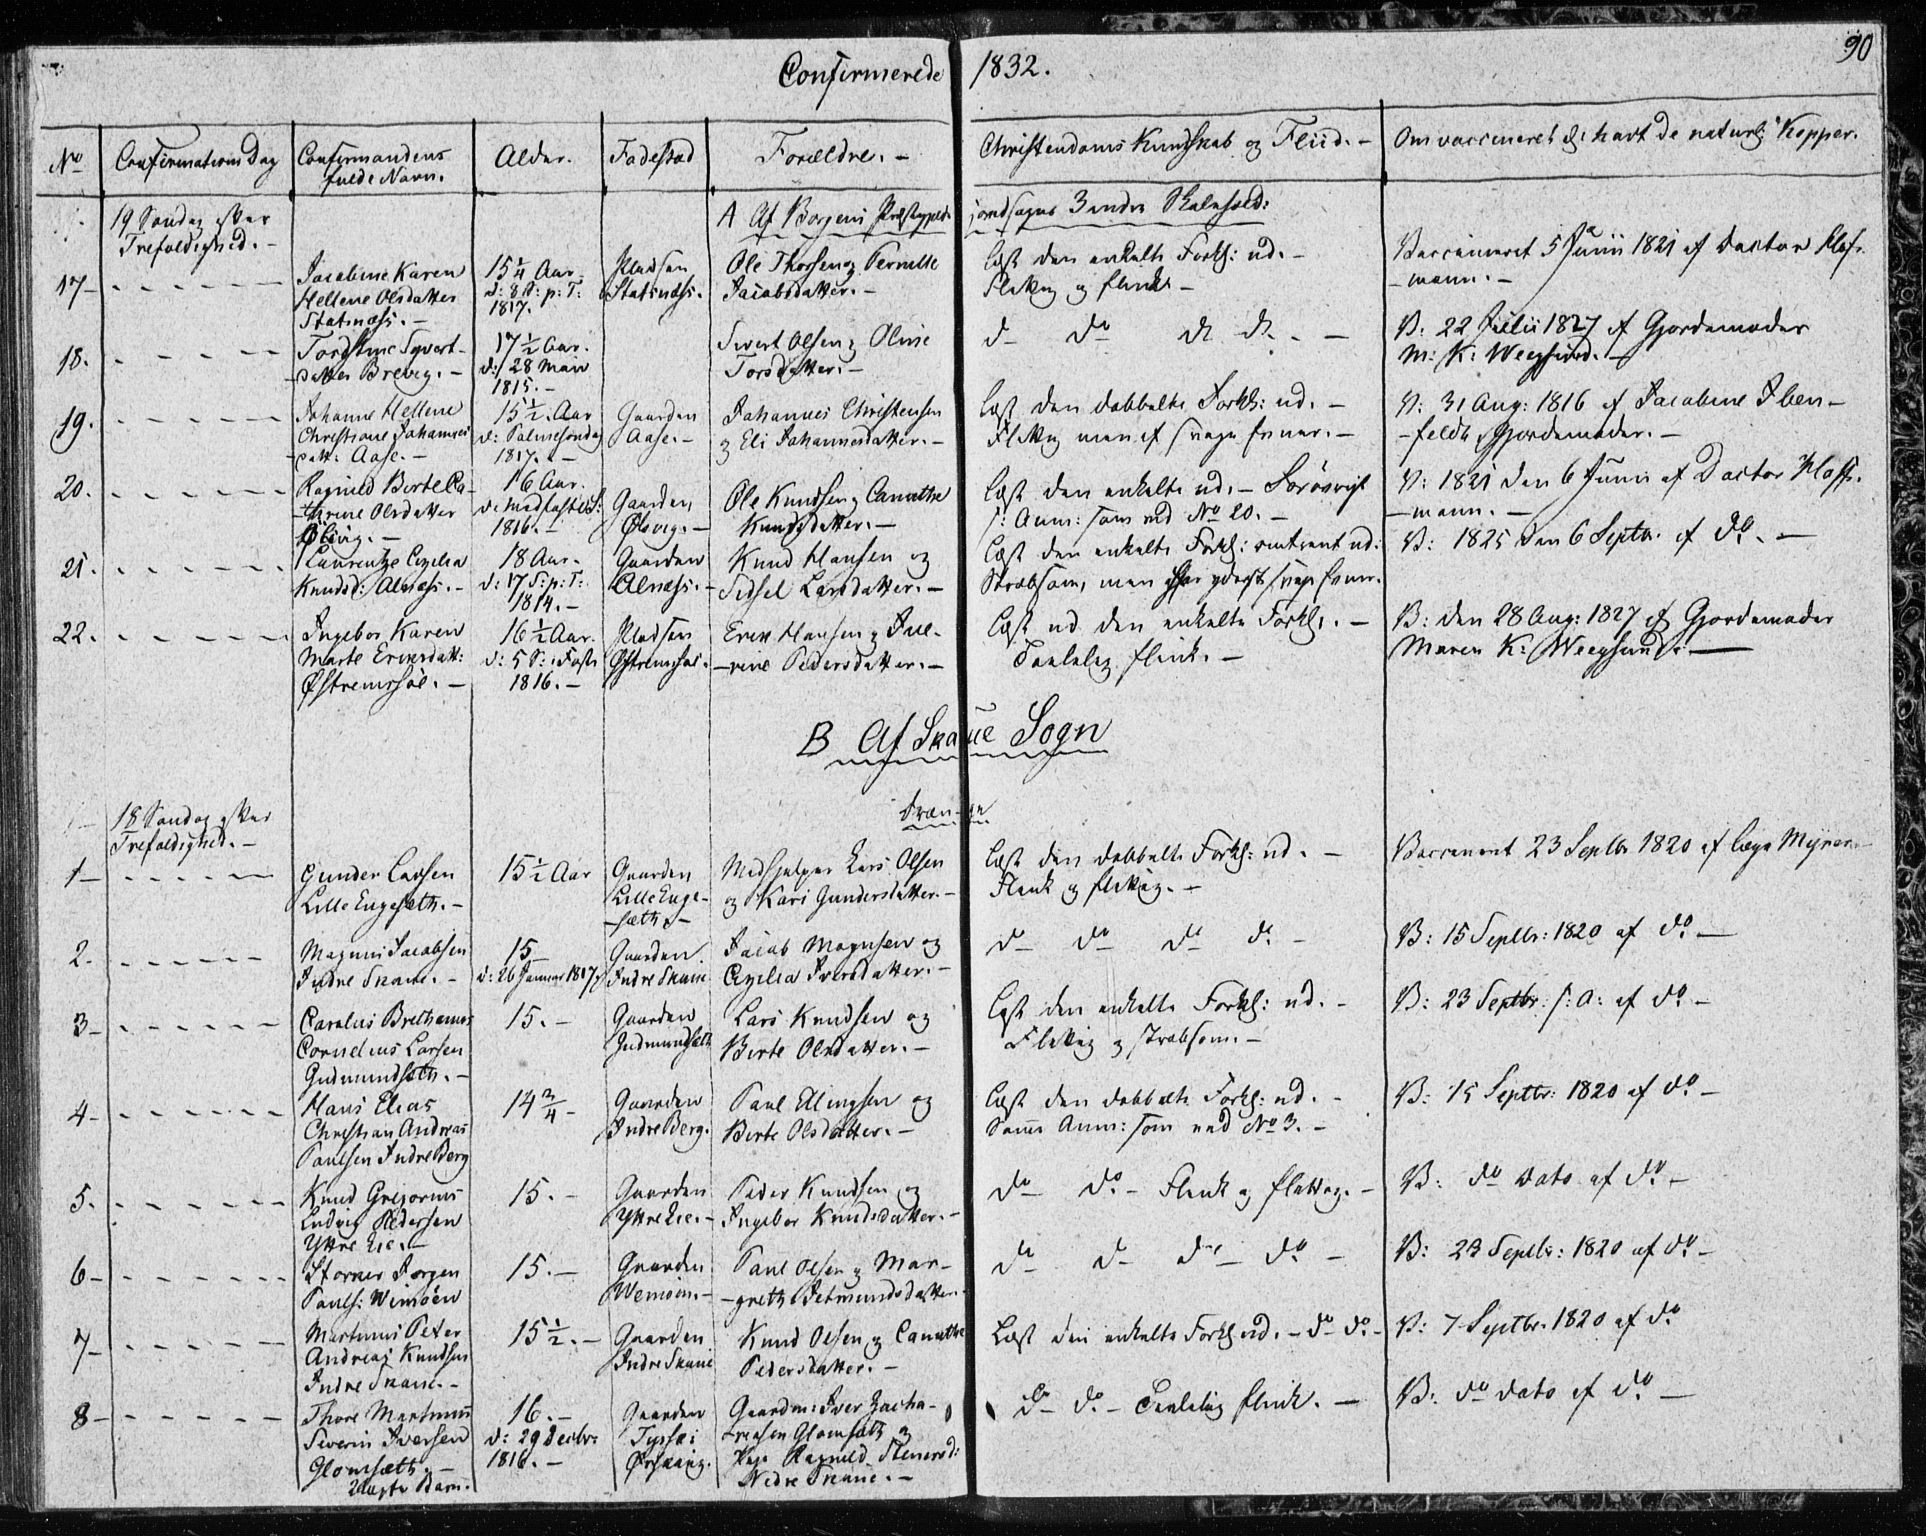 Confirmerede 1832.
90
No
Confirmations Dag
Confirmandens
fulde Navn.
Alder.
Fødested
Forældre. -
Christendoms Kundskab og Fliid. -
Om vaccineret eller havt de naturl: Kopper.
19 Søndag efter
Trefoldighed. -
A Af Borgens Præstegjeld
17 -
Jacobine Karen
Hellene Olsdatter
Statsnæss. -
15 1/4 Aar
d: 8 S: p: T:
1817.
Pladsen
Statsnæss. -
Ole Thorsen og Pernelle
Jacobsdatter. -
læst den enkelte Forkl: ud. -
Flittig og flink -
Vaccineret 5 Junii 1821 af Doctor Hoff-
-mann. -
18.
Tordstine Syvert-
-datter Breveg. -
17 1/2 Aar.
d: 28 Maii
1815. -
Sivert Olsen og Oline
Torsdatter. -
do do do do -
V: 22 Julii 1827 af Gjordemoder
M: K: Weegsund. -
19.
Johanne Hellene
Christiane Johannes
datt: Aase. -
15 1/2 Aar
d: Palmesøndag
1817. -
Gaarden
Aase. -
Johannes Christensen
og Eli Johannesdatter. -
læst den dobbelte Forkl: ud. -
Flittig men af svage Evner. -
V: 31 Aug: 1816 af Jacobine Iben-
-feldt, Gjordemoder. -
20.
Ragnild Berte Ca-
-thrine Olsdatter
Ølvig. -
16 Aar.
d: Midfaste S:
1816. -
Gaarden
Ølvig. -
Ole Knudsen og Canuthe
Knudsdatter. -
læst den enkelte ud. -
s: Anm: som ved No 20. -
V: 1821 den 6 Junii af Doctor Hoff-
-mann. -
21.
Laurentze Cecilia
Knudsd: Alnæss. -
18 Aar.
d: 17 S: p: T:
1814. -
Gaarden
Alnæss. -
Knud Hansen og
Sidsel Larsdatter. -
læst den enkelte Forkl: omtrent ud:
Stræbsom, men har yderst svage Evner.
V: 1825 den 6 Septbr. af do. -
22.
Ingebor Karen
Marte Ericsdatt:
Østremsøe. -
16 1/2 Aar.
d: 5 S: i Faste
1816. -
Pladsen
Østremsøe. -
Erik Hansen og Jve-
-rine Pedersdatter. -
læst ud den enkelte Forkl. -
Taalelig flink. -
V: den 28 Aug: 1827 af Gjordemoder
Maren K: Weegsund. -
B Af Skoue Sogn
Drænge
18 Søndag efter
Trefoldighed. -
1 -
Gunder Larsen
Lille Engesæth. -
15 1/2 Aar
Gaarden
Lille Enge-
-sæth. -
Medhjelper Lars Olsen
og Kari Gundersdatter. -
læst den dobbelte Forkl: ud. -
Flink og flittig. -
Vaccineret 23 Septbr 1820 af Læge Meyner. -
2.
Magnus Jacobsen
Indre Skoue. -
15 -
d: 26 Januar 1817
Gaarden
Indre Skoue
Jacob Magnsen og
Cecilia Iversdatter. -
do do do do -
V: 15 Septbr: 1820 af do -
3 -
Carolus Brethanus
Cornelius Larsen
Gudmundsæth. -
15. -
Gaarden
Gudmundsæth
Lars Knudsen og
Berte Olsdatter. -
læst den enkelte Forkl: ud. -
Flittig og stræbsom. -
V: 23 Septbr: s: A: af do -
4 -
Hans Elias
Christian Andreas
Paulsen Indre Berg
14 3/4 -
Gaarden
Indre Berg.
Paul Ellingsen og
Berte Olsdatter. -
læst den dobbelte Forkl: ud. -
Samme Anm: som ved No 3. -
V: 15 Septbr: 1820 af do -
5.
Knud Gregorius
Ludvig Pedersen
Yttre Lie. -
15. -
Gaarden
Yttre Lie. -
Peder Knudsen og
Ingebor Knudsdatter. -
do do - Flink og flittig. -
V: do Dato af do -
6 -
Størner Jørgen
Pauls: Wemøen
15. -
Gaarden
Wemøen. -
Paul Olsen og Mar-
-grethe Jetmundsdatter. -
do do do do -
V: 23 Septbr: 1820 af do -
7 -
Martinus Peter
Andreas Knudsen
Indre Skoue. -
15 1/2. -
Gaarden
Indre Skoue
Knud Olsen og Canuthe
Pedersdatter. -
Læst den enkelte Forkl: ud. - do do. -
V: 7 Septbr. 1820 af do
8 -
Thore Martinus
Severin Iversen
Glomsæth. -
uægte Barn.
16. -
d: 29 Decbr:
1816. -
Gaarden
Gaardm: Iver Zacha-
-riasen Glomsæth og
Pige Ragnild Stenersd:
Nedre Skoue. -
do do. - Taalelig flink. -
V: do dato af do -